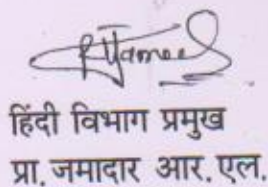 हिंदी विभाग प्रमुख
प्रा. जमादार आर. एल.